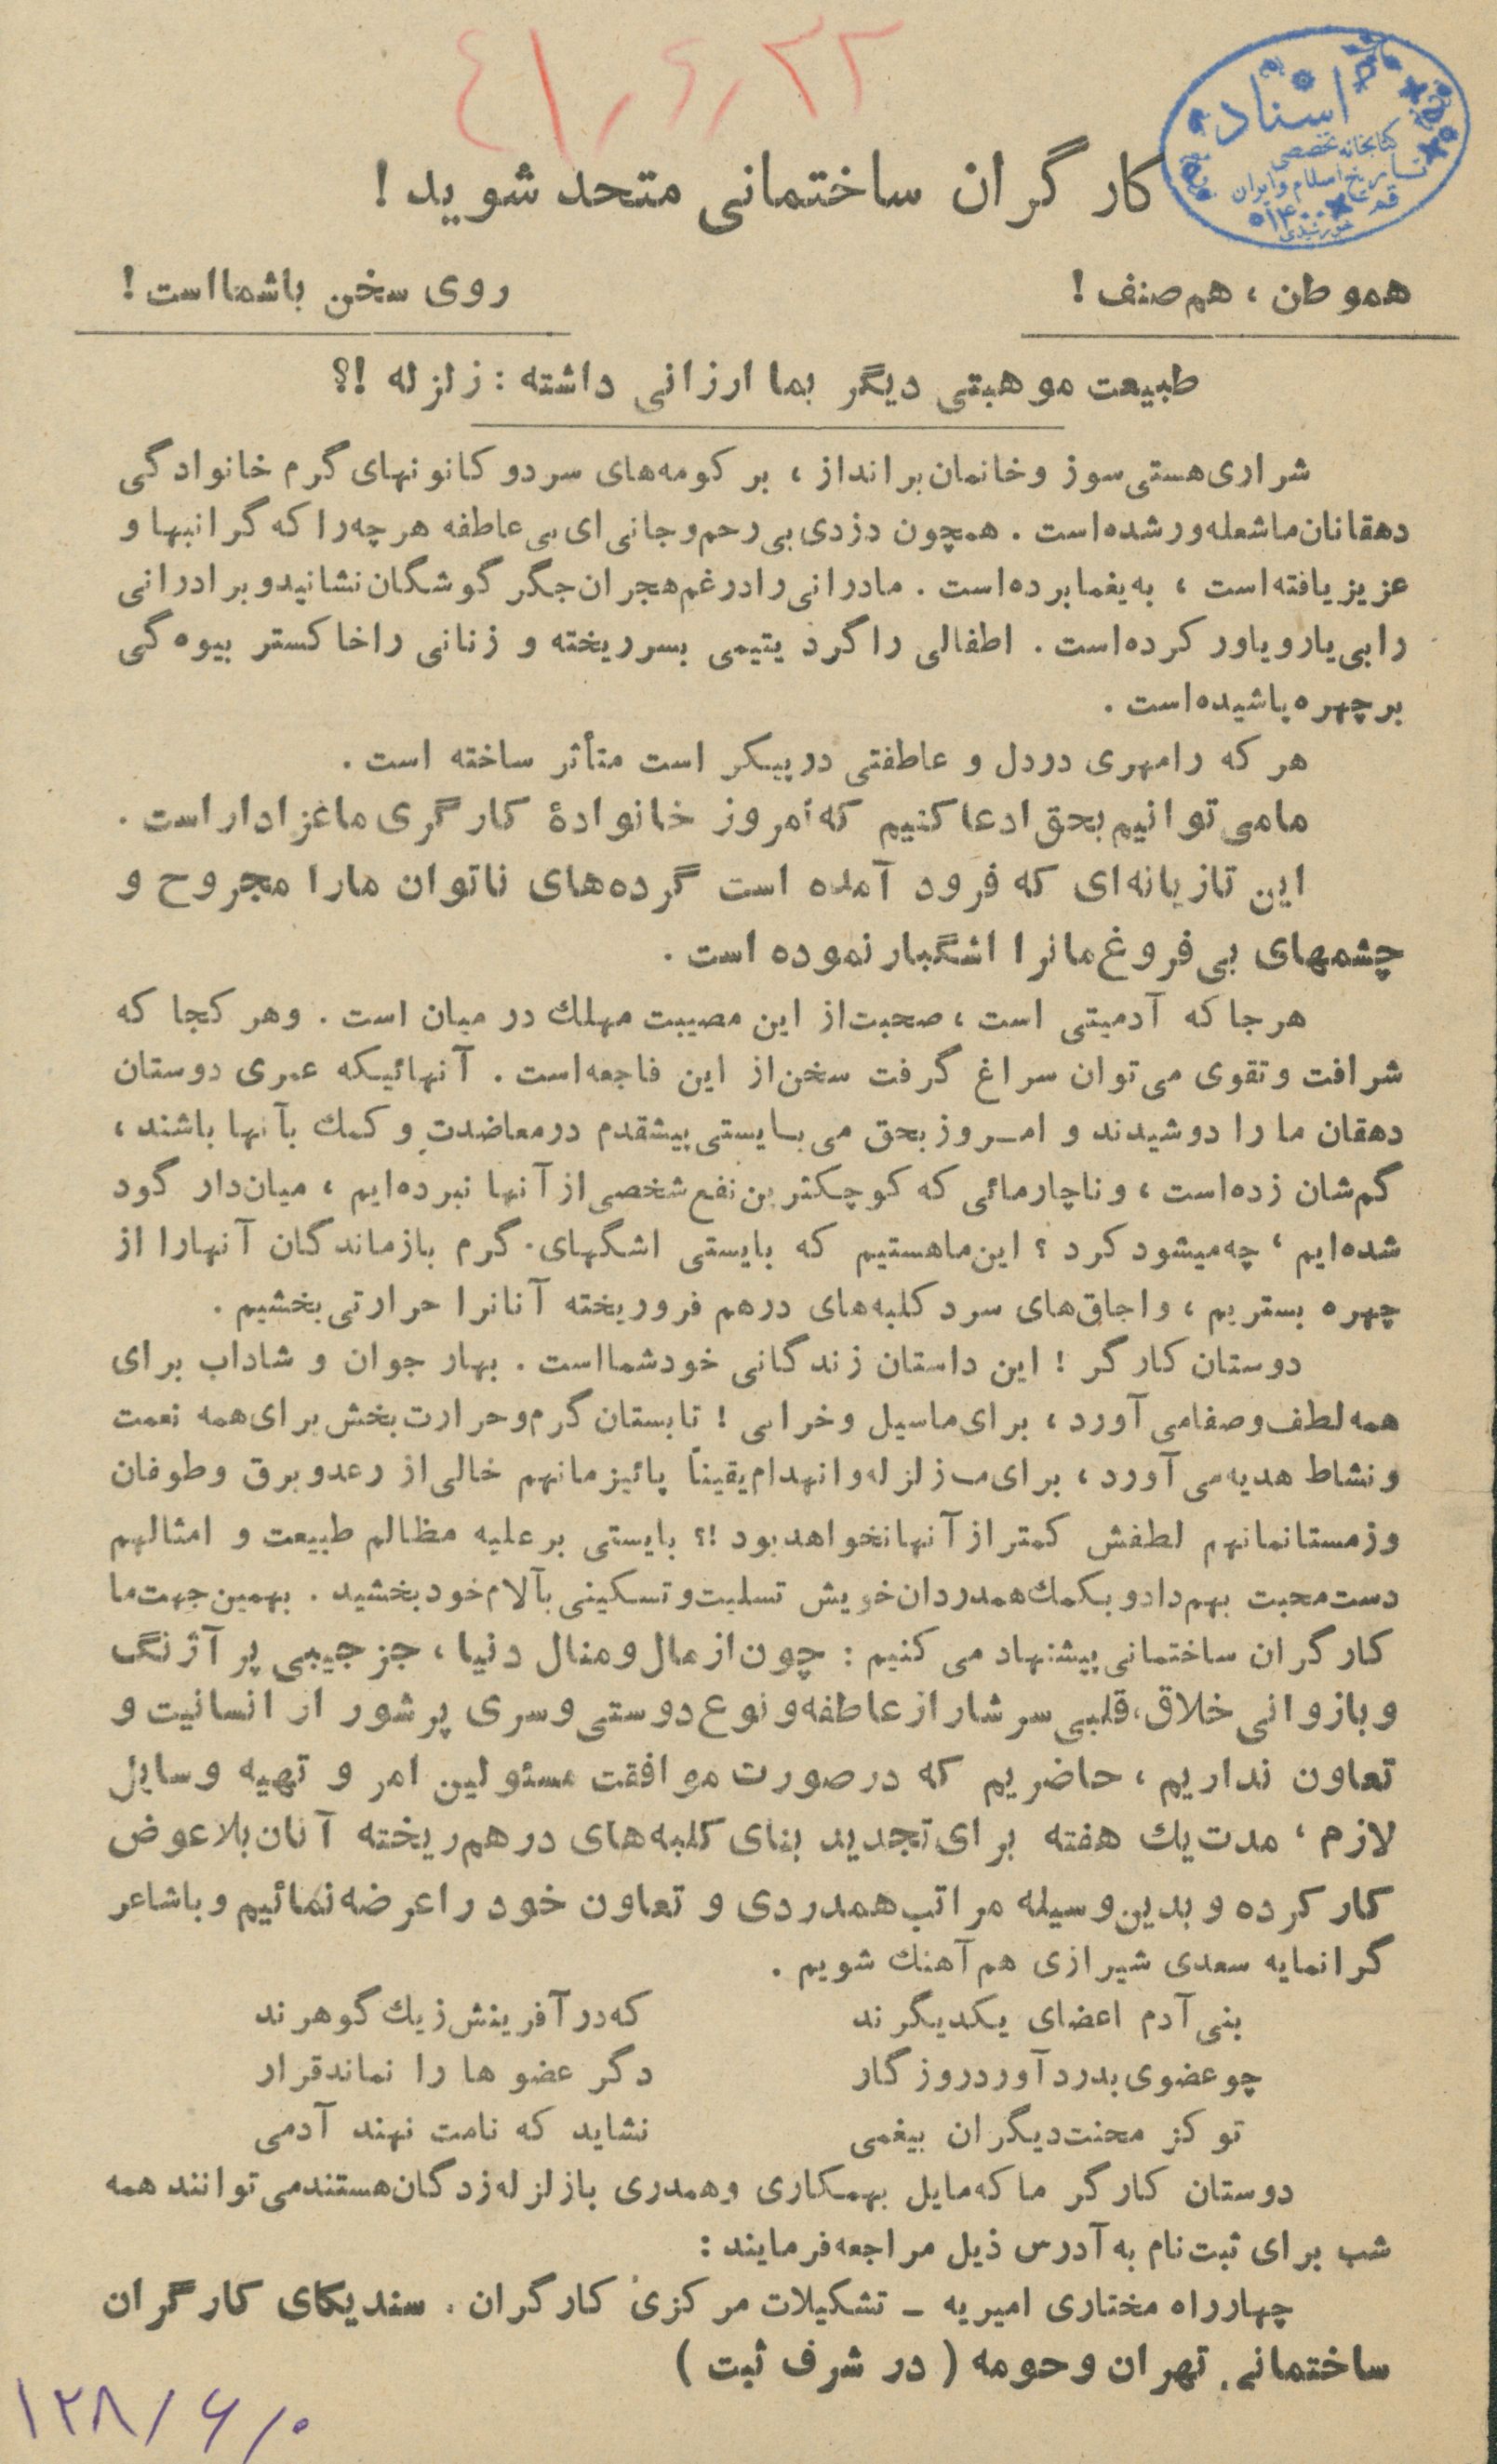 ٤١/٦/٢٢
اسناد
کتابخانه تخصصی
تاریخ اسلام و ایران
قم
کارگران ساختمانی متحد شوید!
هموطن، هم‌صنف!
روی سخن باشمااست!
طبیعت موهبتی دیگر بما ارزانی داشته: زلزله !؟
شراری‌هستی‌سوز و خانمان‌برانداز، بر کومه‌های سرد و کانونهای گرم خانوادگی
دهقانان‌ماشعله‌ور شده‌است. همچون دزدی بی‌رحم‌وجانی‌ای بی‌عاطفه هرچه‌را که گرانبها و
عزیز یافته‌است، به‌یغمابرده‌است. مادرانی‌رادرغم‌هجران‌جگرگوشگان‌نشانیدو برادرانی
رابی‌یارویاور کرده‌است. اطفالی راگرد یتیمی بسرریخته و زنانی راخاکستر بیوه‌گی
برچهره‌پاشیده‌است.
هر که رامهری دردل و عاطفتی درپیکر است متأثر ساخته است.
مامی‌توانیم‌بحق‌ادعا کنیم که امروز خانوادهٔ کارگری ماعزاداراست.
این تازیانه‌ای که فرود آمده است گرده‌های ناتوان مارا مجروح و
چشمهای بی‌فروغ‌مانرا اشگبار نموده است.
هرجا که آدمیتی است، صحبت‌از این مصیبت مهلك در میان است. وهر کجا که
شرافت و تقوی می‌توان سراغ گرفت سخن‌از این فاجعه‌است. آنهائیکه عمری دوستان
دهقان ما را دوشیدند و امـروز بحق می‌بـایستی‌پیشقدم درمعاضدت و کمك بآنها باشند،
گم‌شان زده‌است، و ناچارمائی که کوچکترین‌نفع‌شخصی‌از آنها نبرده‌ایم، میان‌دار گود
شده‌ایم، چه‌میشود کرد؟ این‌ماهستیم که بایستی اشگهای گرم بازماندگان آنهارا از
چهره بستریم، واجاق‌های سرد کلبه‌های درهم فروریخته آنانرا حرارتی‌بخشیم.
دوستان کارگر! این داستان زندگانی خودشمااست. بهار جوان و شاداب برای
همه‌لطف‌وصفامی‌آورد، برای‌ماسیل وخرابی! تابستان گرم‌وحرارت‌بخش‌برای‌همه نعمت
و نشاط هدیه‌می‌آورد، برای‌مـ زلزله‌وانهدام‌یقیناً پائیزمانهم خالی‌از رعدوبرق وطوفان
وزمستانمانهم لطفش کمتر از آنهانخواهدبود !؟ بایستی برعلیه مظالم طبیعت و امثالهم
دست‌محبت بهم‌دادو بکمك‌همدردان‌خویش تسلیت‌و تسکینی بآلام‌خودبخشید. بهمین‌جهت‌ما
کارگران ساختمانی‌پیشنهاد می‌کنیم: چون‌از مال‌ومنال دنیا، جز جیبی پرآژنگ
و بازوانی خلاق،قلبی سرشار از عاطفه‌و نوع‌دوستی وسری پرشور از انسانیت و
تعاون نداریم، حاضریم که درصورت موافقت مسئولین امر و تهیه وسایل
لازم، مدت‌یك هفته برای‌تجدید بنای کلبه‌های درهم‌ریخته آنان‌بلاعوض
کار کرده و بدین‌وسیله مراتب‌همدردی و تعاون خود را عرضه‌نمائیم و باشاعر
گرانمایه سعدی شیرازی هم‌آهنك شویم.
بنی آدم اعضای یکدیگرند
که‌در آفرینش‌زیك گوهرند
چو عضوی بدرد آوردروزگار
دگر عضو ها را نماندقرار
تو کز محنت‌دیگران بیغمی
نشاید که نامت نهند آدمی
دوستان کارگر ما که‌مایل بهمکاری وهمدری بازلزله‌زدگان‌هستندمی‌توانند همه
شب برای ثبت‌نام به آدرس ذیل مراجعه‌فرمایند:
چهارراه مختاری امیریه ـ تشکیلات مرکزی کارگران. سندیکای کارگران
ساختمانی تهران و حومه (در شرف ثبت)
۱۲۸/۶/۰